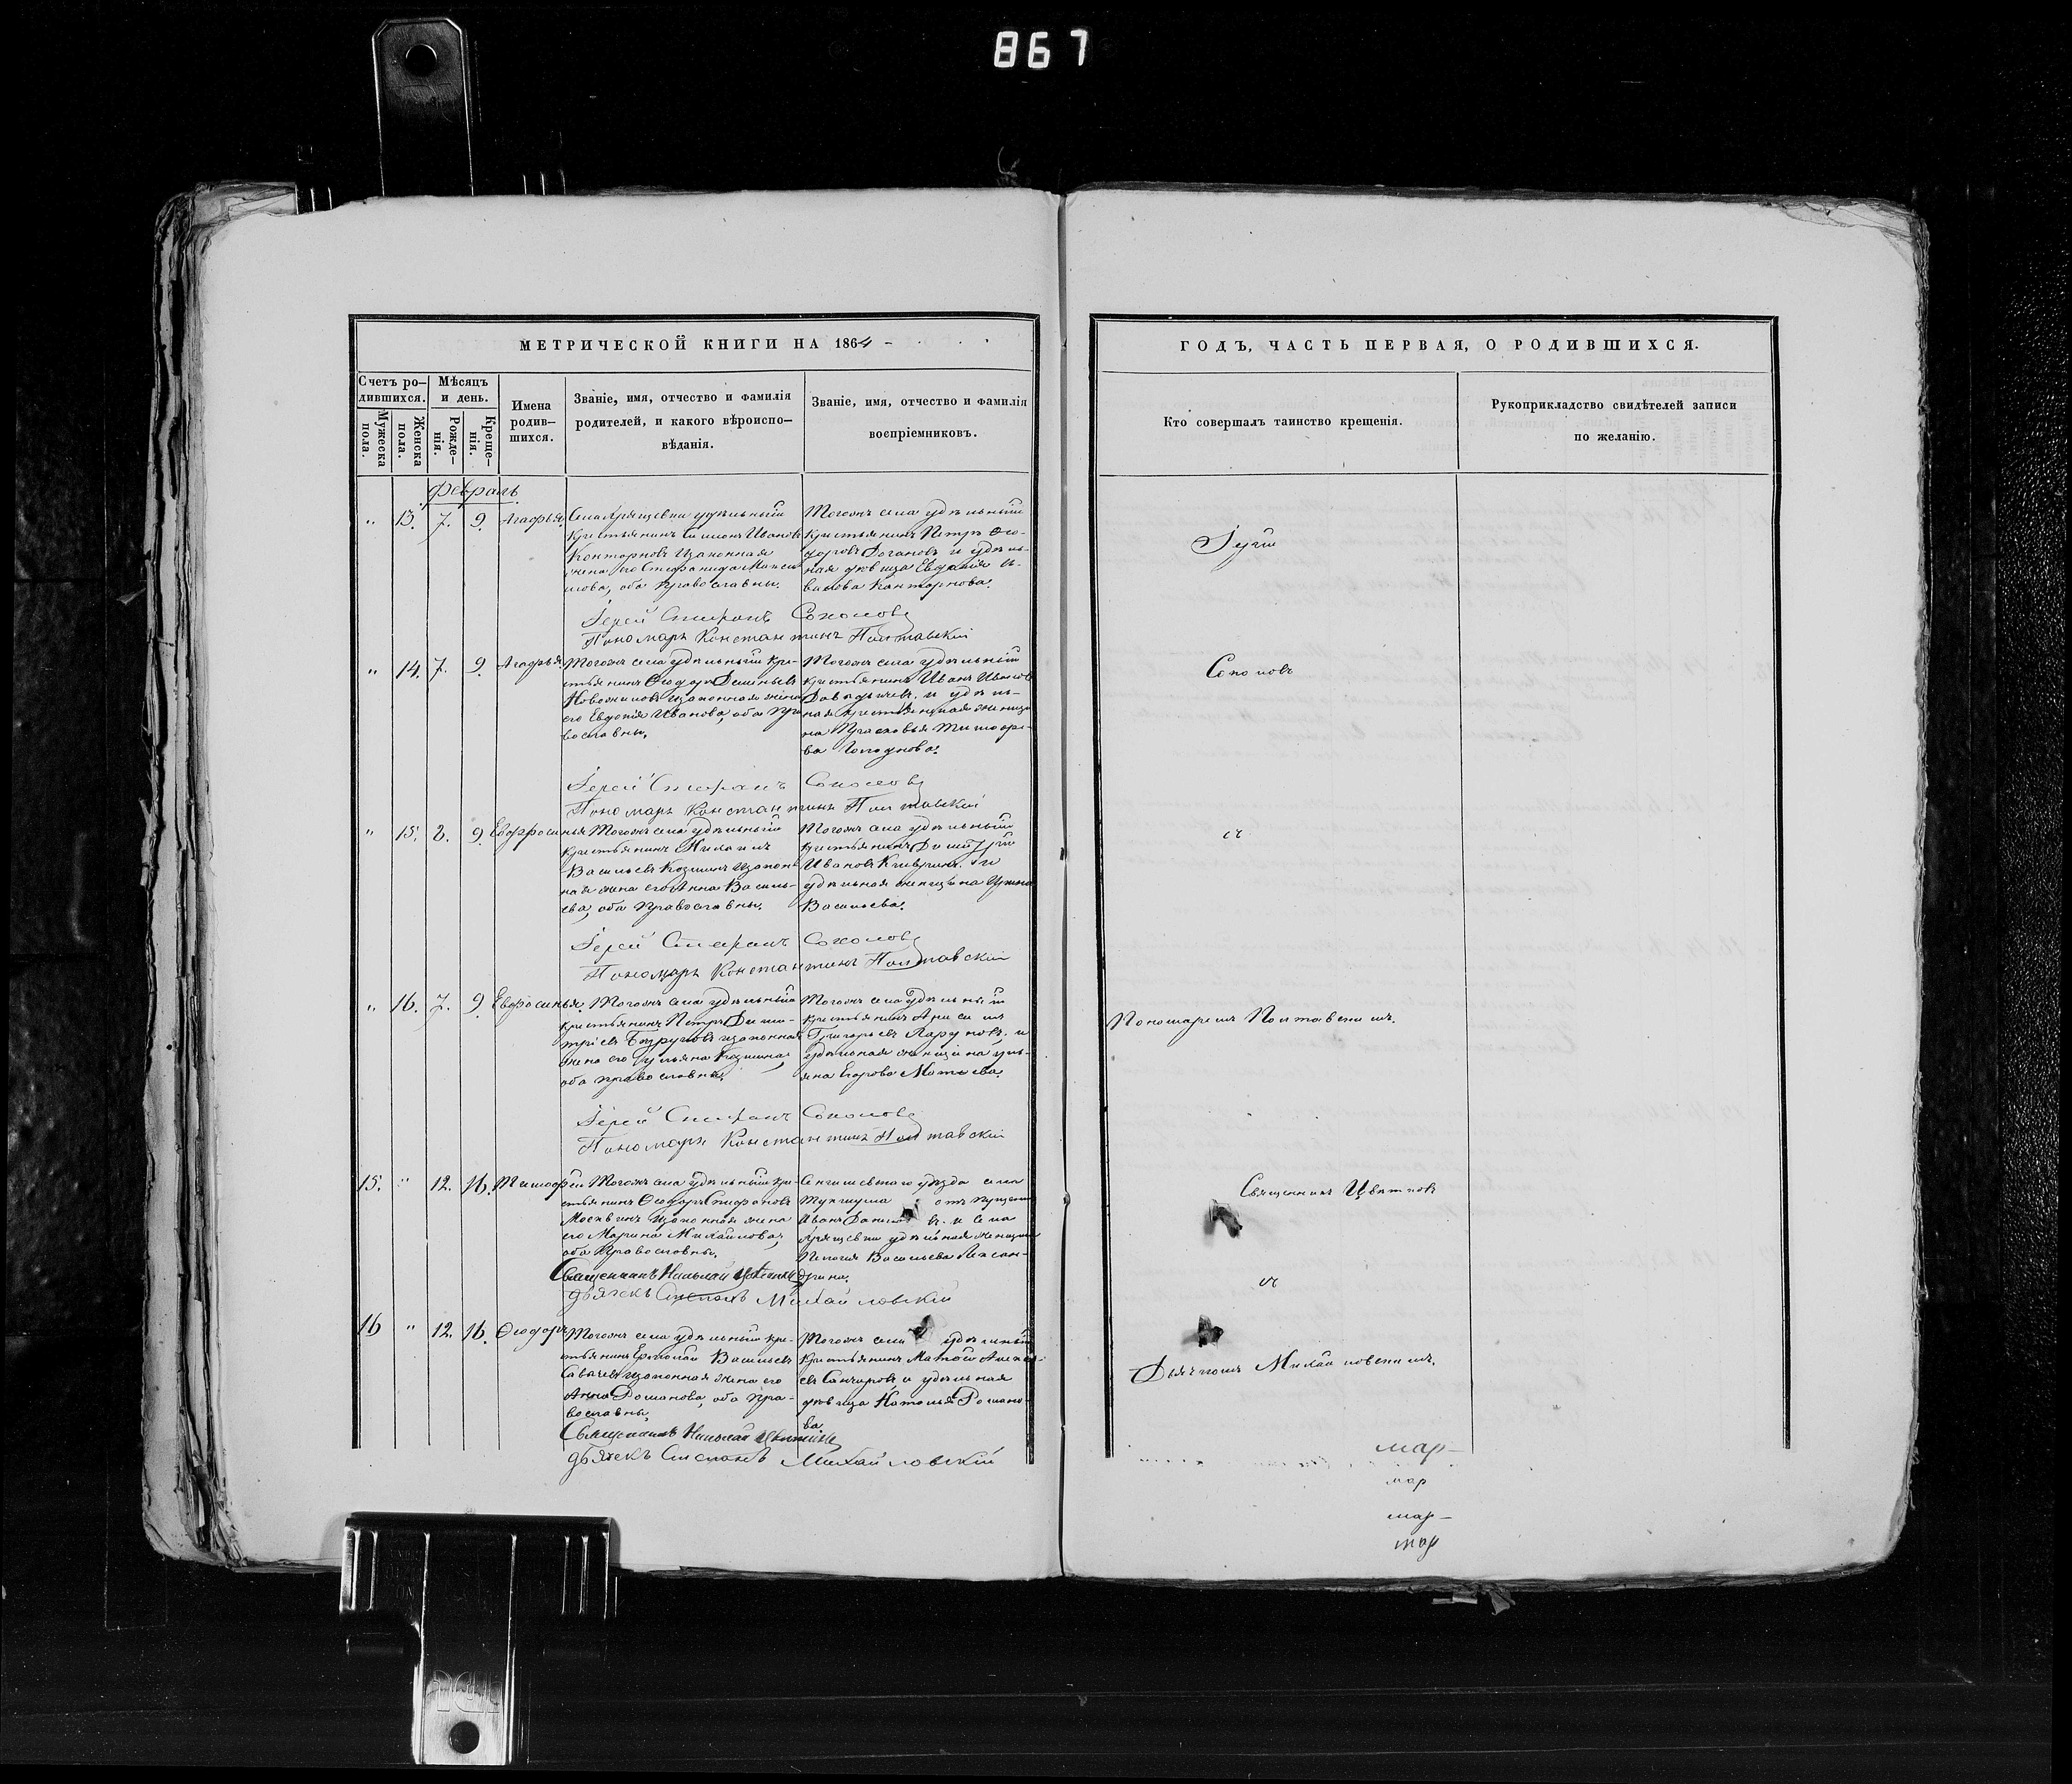 867
МЕТРИЧЕСКОЙ КНИГИ НА 1864
Счетъ ро-
дившихся.
Мужеска
пола.
Женска
пола.
Мѣсяцъ
и день.
Рожде-
нія.
Креще-
нія.
Имена
родив-
шихся.
Званіе, имя, отчество и фамилія
родителей, и какого вѣроиспо-
вѣданія.
Званіе, имя, отчество и фамилія
воспріемниковъ.
февраль
" 13. 7. 9. Агафья.
Села Хрящевки удѣльный
крестьянинъ Симионъ Ивановъ
законная
жена его Степанида
оба православны.
Тогожъ села удѣльный
крестьянинъ Петръ Ѳео-
доровъ и удѣль-
ная дѣвица Евдокія И-
ванова
Іерей Стефанъ Соколовъ
Пономарь Константинъ Полтавскій
" 14. 7. 9. Агафья
Тогожъ села удѣльный кре-
стьянинъ Ѳеодоръ
законная жена
его Евдокія Иванова, оба пра-
вославны.
Тогожъ села удѣльный
крестьянинъ Иванъ Ивановъ
Давыдычевъ и удѣль-
ная
Прасковья Тимофѣе-
ва Голоднова.
Іерей Стефанъ Соколовъ
Пономарь Константинъ Полтавскій
" 15. 8. 9. Евфросинья
Тогожъ села удѣльный
крестьянинъ
Васильевъ Козминъ закон-
ная жена его Анна Василь-
ева, оба православны.
Тогожъ села удѣльный
крестьянинъ Димитрій
Ивановъ и
удѣльная женщина
Васильева.
Іерей Стефанъ Соколовъ
Пономарь Константинъ Полтавскій
" 16. 7. 9. Евфросинья.
Тогожъ села удѣльный
крестьянинъ Петръ Дими-
тріевъ законная
жена его Ульяна Козмина,
оба православны.
Тогожъ села удѣльный
крестьянинъ
Григорьевъ и
удѣльная женщина Уль-
яна Егорова
Іерей Стефанъ Соколовъ
Пономарь Константинъ Полтавскій
15. " 12. 16. Тимофей
Тогожъ села удѣльный кре-
стьянинъ Ѳеодоръ Стефановъ
Москвинъ законная жена
его Марина Михайлова,
оба православны.
уѣзда села
Иванъ и села
Хрящевки удѣльная женщина
Пелагія Васильева Лексан-
дрина.
Священникъ Николай Цвѣтковъ
дьячекъ Степанъ Михайловскій
16 " 12. 16. Ѳеодоръ
Тогожъ села удѣльный кре-
стьянинъ Ермолай Васильевъ
законная жена его
Анна Романова, оба пра-
вославны.
Тогожъ села удѣльный
крестьянинъ Матвѣй Алексѣ-
евъ и удѣльная
дѣвица Наталья Романо-
ва.
Священникъ Николай Цвѣтковъ
дьячекъ Степанъ Михайловскій
ГОДЪ, ЧАСТЬ ПЕРВАЯ, О РОДИВШИХСЯ.
Кто совершалъ таинство крещенія.
Рукоприкладство свидѣтелей записи
по желанію.
Іерей
Соколовъ
съ
Пономаремъ Полтавскимъ.
Священникъ Цвѣтковъ
съ
Дьячкомъ Михайловскимъ.
мар-
мар
мар-
мар